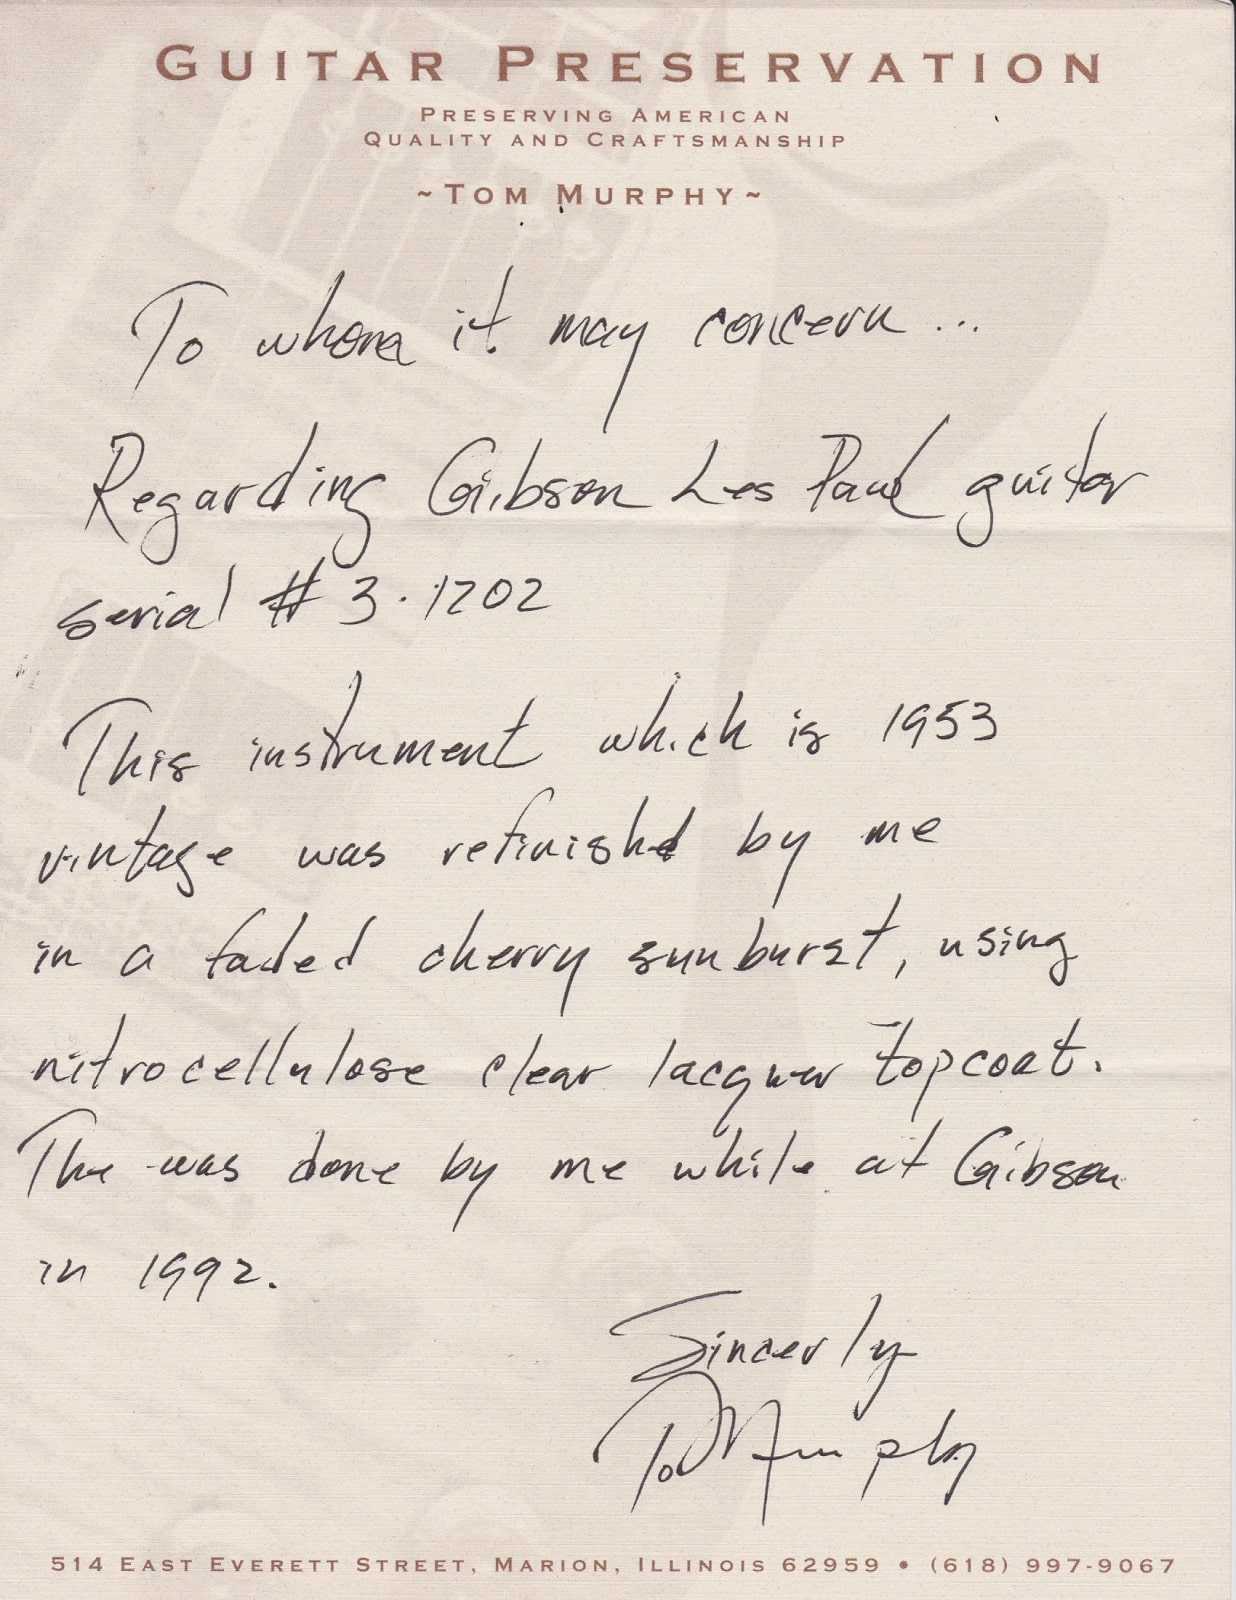 GUITAR PRESERVATION
PRESERVING AMERICAN
QUALITY AND CRAFTSMANSHIP
~TOM MURPHY~
To whom it may concern...
Regarding Gibson Les Paul guitar
serial # 3·1202
This instrument which is 1953
vintage was refinished by me
in a faded cherry sunburst, using
nitrocellulose clear lacquer topcoat.
The was done by me while at Gibson
in 1992.
Sincerly
Tom Murphy
514 EAST EVERETT STREET, MARION, ILLINOIS 62959 • (618) 997-9067